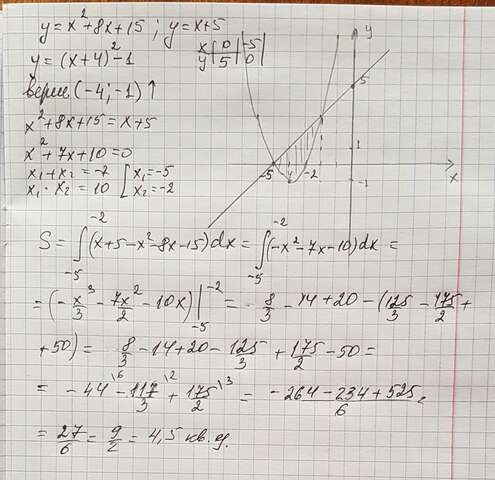 y=x²+8x+15 ; y=x+5
x | 0 | -5
y | 5 | 0
y=(x+4)²-1
верш (-4; -1) ↑
x²+8x+15=x+5
x²+7x+10=0
x₁+x₂=-7 [ x₁=-5
x₁·x₂=10 [ x₂=-2
y
5
1
-5
-2
-1
x
S = ∫₋₅⁻² (x+5-x²-8x-15)dx = ∫₋₅⁻² (-x²-7x-10)dx =
= (-x³/3 - 7x²/2 - 10x) |₋₅⁻² = 8/3 - 14 + 20 - (125/3 - 175/2 +
+50) = 8/3 - 14 + 20 - 125/3 + 175/2 - 50 =
= -44\⁶ - 117/3\² + 175/2\³ = (-264-234+525)/6 =
= 27/6 = 9/2 = 4,5 кв. ед.